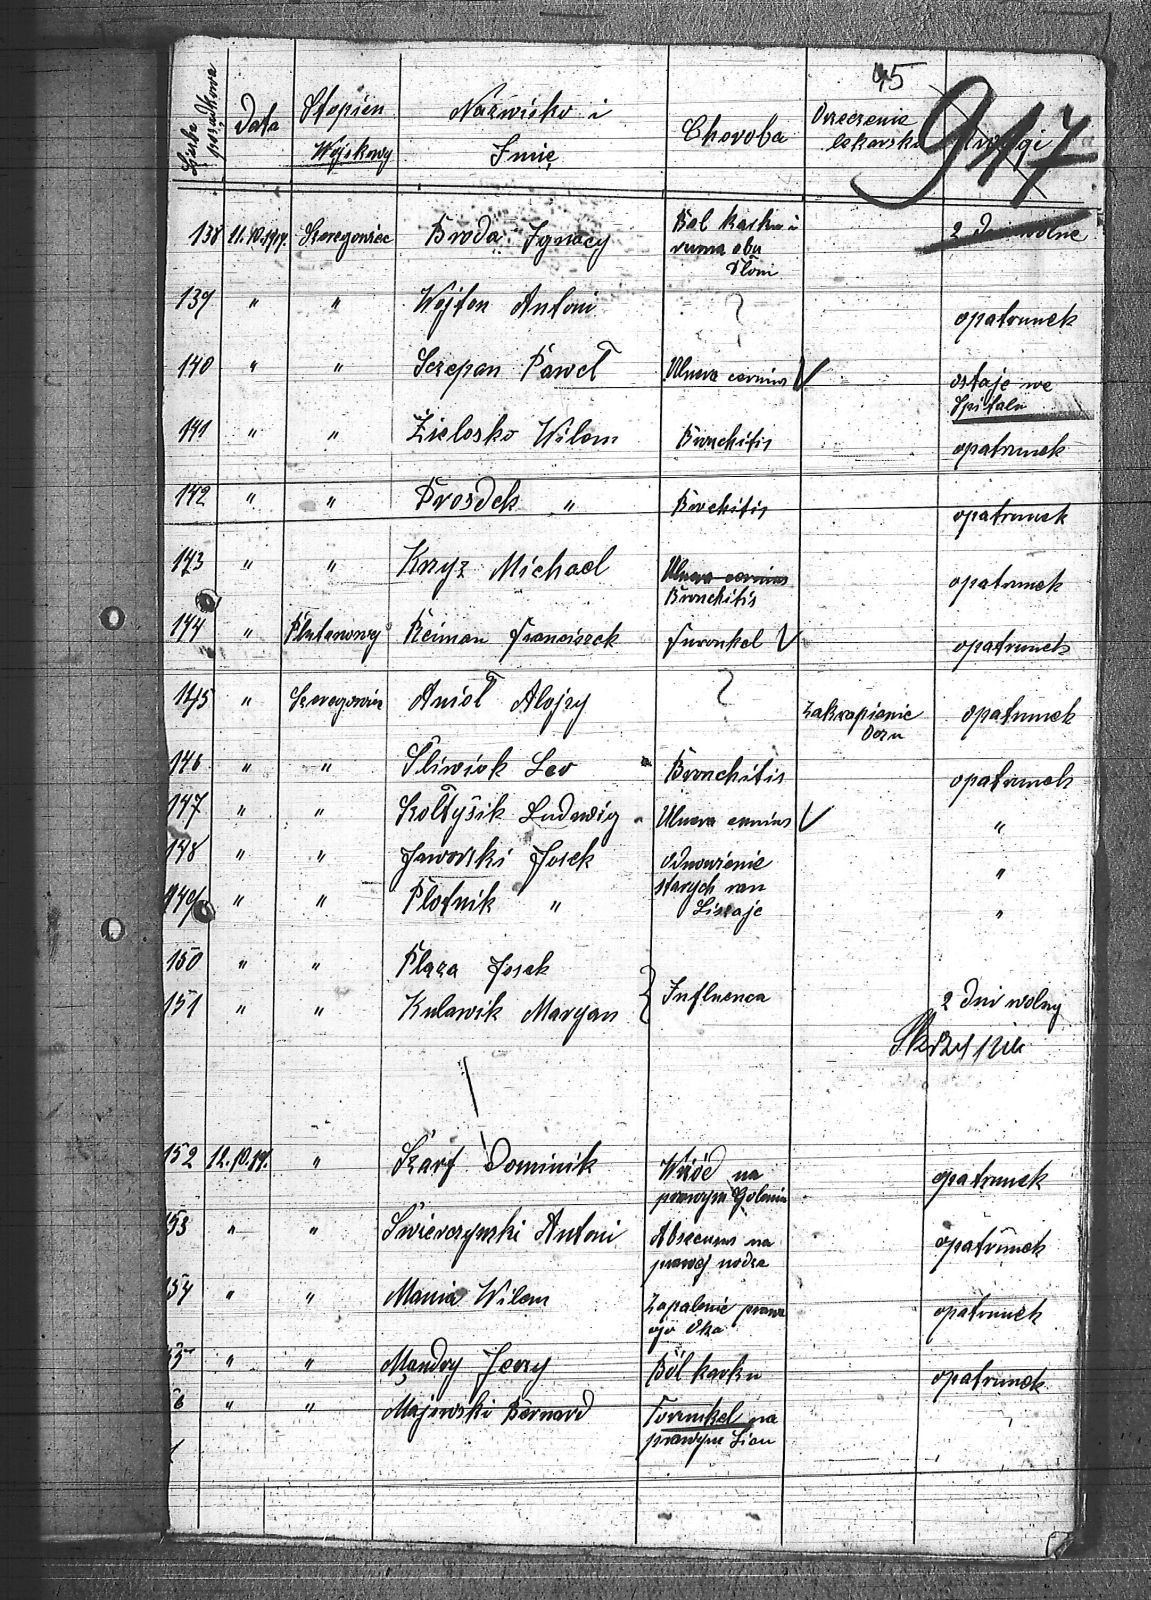 45
917
Liczba porządkowa Data Stopień Wojskowy Nazwisko i Imię Choroba Orzeczenie lekarskie Uwagi
138 11.10.1919. Szeregowiec Broda Ignacy Ból karku i ruma obu dłoni 2 dni wolne
139 " " Wojton Antoni ? opatrunek
140 " " Szczepan Paweł Ulcera V ostaje we Spitalu
141 " " Zielosko Wilem Bronchitis opatrunek
142 " " Prosdek " Bronchitis opatrunek
143 " " Knyz Michael Bronchitis opatrunek
144 " Plutonowy Reiman Franciszek Furonkel V opatrunek
145 " Szeregowiec Anioł Alojzy ? Zakrapianie Oczu opatrunek
146 " " Śliwiok Leo Bronchitis opatrunek
147 " " Kołtyśik Ludwig Ulcera V "
148 " " Jaworski Josek odnowienie starych ran "
149 " " Plotnik " Liszaje "
150 " " Plaza Josek
151 " " Kulawik Maryan } Influenca 2 dni wolny
152 12.10.19. " Szarf Dominik Wrzód na prawym Goleniu opatrunek
153 " " Świerczynski Antoni Abscenus na prawej nodze opatrunek
154 " " Mania Wilem Zapalenie prawego Oka opatrunek
55 " " Mandry Jerzy Ból karku opatrunek
6 " " Majewski Bernard Forunkel na prawym